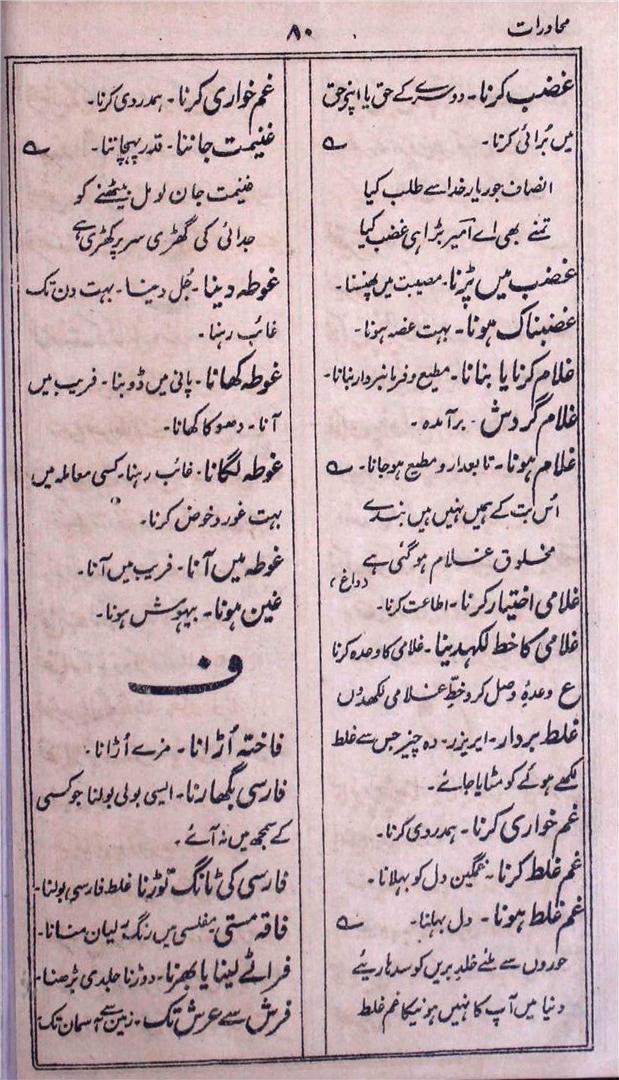 محاورات
۸۰
غضب کرنا۔ دوسرے کے حق یا اپنی حق
میں بُرائی کرنا۔ ؎
انصاف جور یار خدا سے طلب کیا
تمنے بھی اے امیر بڑا ہی غضب کیا
غضب میں پڑنا۔ مصیبت میں پھنسنا۔
غضبناک ہونا۔ بہت غصہ ہونا۔
غلام کرنا یا بنانا۔ مطیع و فرمانبردار بنانا۔
غلام گردش۔ برآمدہ۔
غلام ہونا۔ تابعدار و مطیع ہوجانا۔ ؎
اُس بُت کے ہمیں نہیں ہیں بندے
مخلوق غلام ہو گئی ہے (داغ)
غلامی اختیار کرنا۔ اطاعت کرنا۔
غلامی کا خط لکھدینا۔ غلامی کا وعدہ کرنا
ع وعدۂ وصل کرو خطِ غلامی لکھدوں
غلط بردار۔ ایریزر۔ وہ چیز جس سے غلط
لکھے ہوئے کو مٹایا جائے۔
غم خواری کرنا۔ ہمدردی کرنا۔
غم غلط کرنا۔ غمگین دل کو بہلانا۔
غم غلط ہونا۔ دل بہلنا۔ ؎
حوروں سے ملنے خلدِ بریں کو سدہاریئے
دنیا میں آپ کا نہیں ہونیکا غم غلط
غم خواری کرنا۔ ہمدردی کرنا۔
غنیمت جاننا۔ قدر پہچاننا۔ ؎
غنیمت جان لو مل بیٹھنے کو
جدائی کی گھڑی سر پر کھڑی ہے
غوطہ دینا۔ جُل دینا۔ بہت دن تک
غائب رہنا۔
غوطہ کھانا۔ پانی میں ڈوبنا۔ فریب میں
آنا۔ دھوکا کھانا۔
غوطہ لگانا۔ غائب رہنا۔ کسی معاملہ میں
بہت غور و خوض کرنا۔
غوطہ میں آنا۔ فریب میں آنا۔
غین ہونا۔ بیہوش ہونا۔
ف
فاختہ اُڑانا۔ مزے اُڑانا۔
فارسی بگھارنا۔ ایسی بولی بولنا جو کسی
کے سمجھ میں نہ آئے۔
فارسی کی ٹانگ توڑنا غلط فارسی بولنا۔
فاقہ مستی مفلسی میں رنگ رلیان منانا۔
فراٹے لینا یا بھرنا۔ دوڑنا جلدی پڑھنا۔
فرش سے عرش تک۔ زمین سے آسمان تک